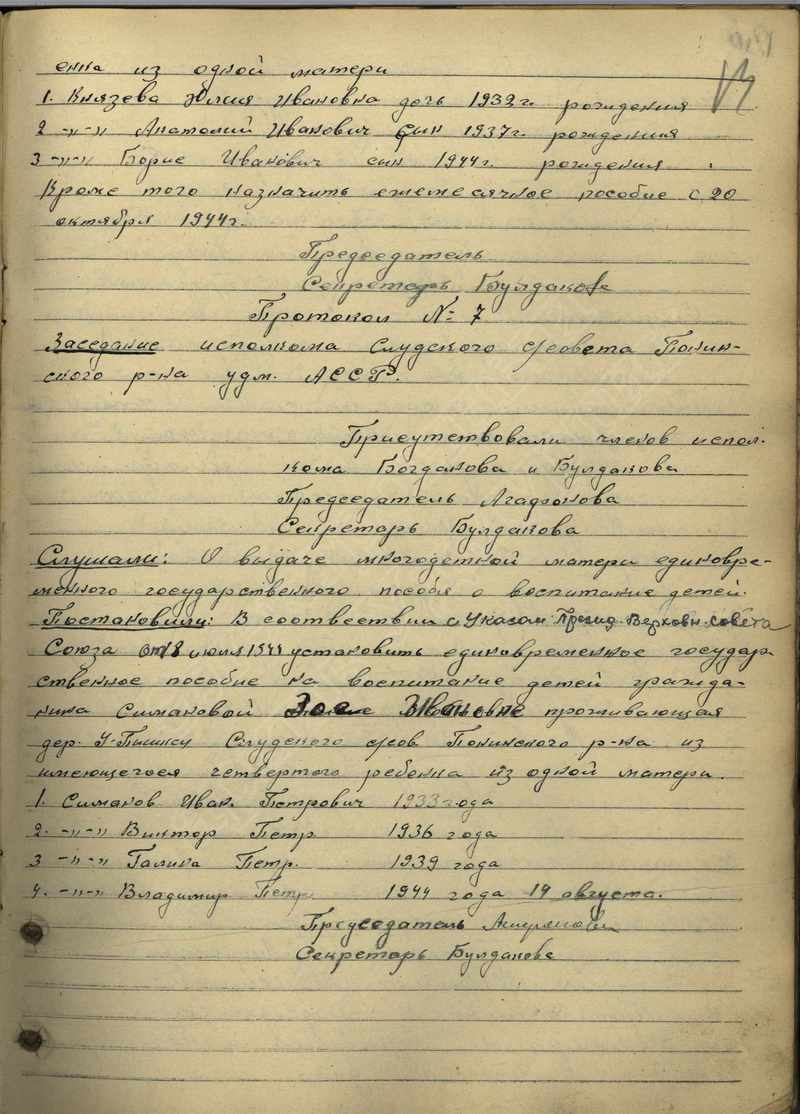 енка из одной матери
1. Князева Юлия Ивановна дочь 1932 г. рождения
2 -"-" Анатолий Иванович сын 1937 г. рождения
3 -"-" Борис Иванович сын 1944 г. рождения.
Кроме того назначить ежемесячное пособие с 20
октября 1944 г.
Председатель
Секретарь Булдакова
Протокол № 7
Заседание исполкома Слудского с/совета Понин-
ского р-на удм. АССР.
Присутствовали членов испол.
кома Богданова и Булдакова
Председатель Агафонова
Секретарь Булдакова
Слушали: О выдаче многодетной матери единовре-
менного государственного пособя о воспитание детей.
Постановили: В соотвествии с Указом Презид. Верховн. совета
Союза от 8 июля 1944 установить единовременное государ
ственное пособие на воспитание детей гражда-
нина Симановой Зое Ивановне проживающая
дер. Слудского с/сов Понинского р-на из
имеющегося четвертого ребенка из одной матери.
1. Симанов Иван Петрович 1933 года
2. -"-" Виктор Петр 1936 года
3 -"-" Галина Петр. 1939 года
4. -"-" Владимир Петр. 1944 года 19 августа.
Председатель
Секретарь Булдакова